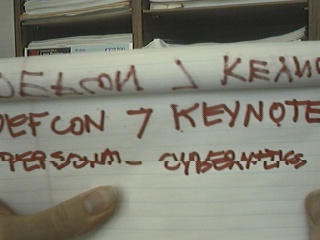 DEFCON 7 KEYNOTE
DEFCON 7 KEYNOTE
PERSONAL CYBERNETICS